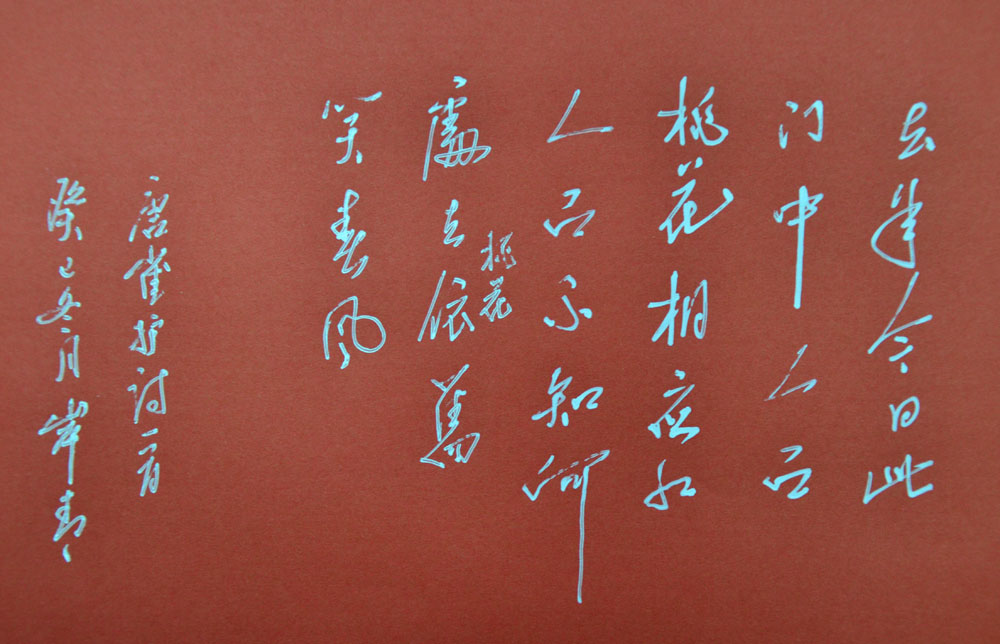 去年今日此
门中人面
桃花相应红
人面不知何
處去依舊
桃花
笑春风
唐崔护诗一首
癸巳冬月岸